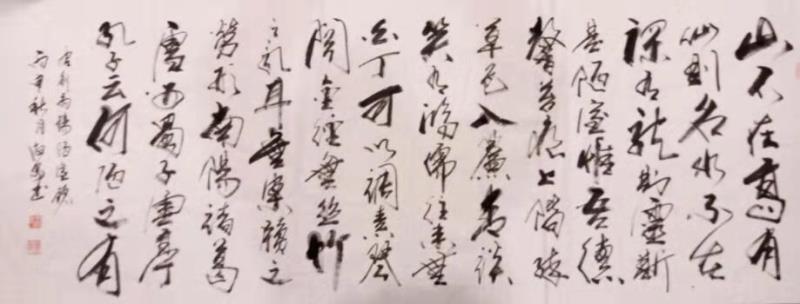 山不在高有
仙则名水不在
深有龙则灵斯
是陋室惟吾德
馨苔痕上阶绿
草色入帘青谈
笑有鸿儒往来无
白丁可以调素琴
阅金经无丝竹
之乱耳无案牍之
劳形南阳诸葛
庐西蜀子云亭
孔子云何陋之有
唐刘禹锡陋室铭
秋月